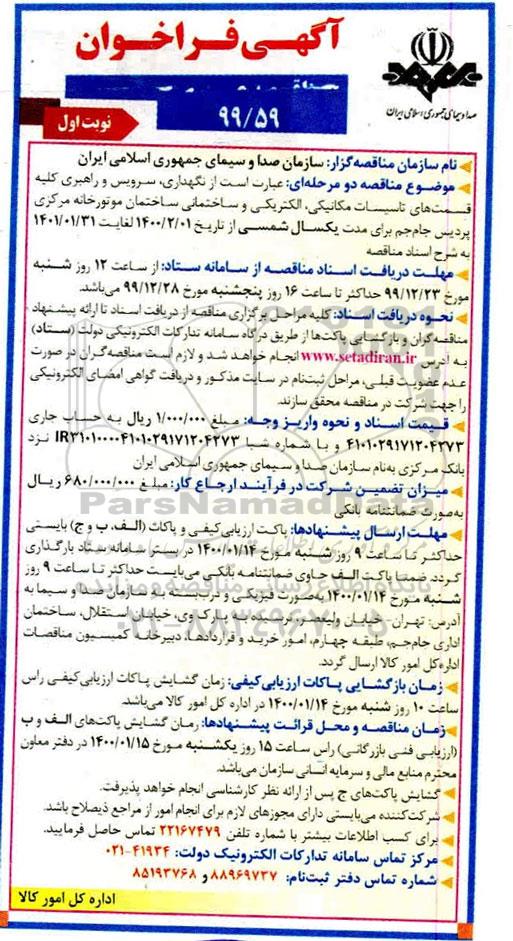 آگهی فراخوان
صدا و سیمای جمهوری اسلامی ایران
۹۹/۵۹
نوبت اول
نام سازمان مناقصه‌گزار: سازمان صدا و سیمای جمهوری اسلامی ایران
موضوع مناقصه دو مرحله‌ای: عبارت است از نگهداری، سرویس و راهبری کلیه
قسمت‌های تاسیسات مکانیکی، الکتریکی و ساختمانی ساختمان موتورخانه مرکزی
پردیس جام‌جم برای مدت یکسال شمسی از تاریخ ۱۴۰۰/۲/۰۱ لغایت ۱۴۰۱/۰۱/۳۱
به شرح اسناد مناقصه
مهلت دریافت اسناد مناقصه از سامانه ستاد: از ساعت ۱۲ روز شنبه
مورخ ۹۹/۱۲/۲۳ حداکثر تا ساعت ۱۶ روز پنجشنبه مورخ ۹۹/۱۲/۲۸ می‌باشد.
نحوه دریافت اسناد: کلیه مراحل برگزاری مناقصه از دریافت اسناد تا ارائه پیشنهاد
مناقصه‌گران و بازگشایی پاکت‌ها از طریق درگاه سامانه تدارکات الکترونیکی دولت (ستاد)
به آدرس www.setadiran.ir انجام خواهد شد و لازم است مناقصه‌گران در صورت
عدم عضویت قبلی، مراحل ثبت‌نام در سایت مذکور و دریافت گواهی امضای الکترونیکی
را جهت شرکت در مناقصه محقق سازند.
قیمت اسناد و نحوه واریز وجه: مبلغ ۱/۰۰۰/۰۰۰ ریال به حساب جاری
۴۱۰۱۰۲۹۱۷۱۲۰۴۲۷۳ و با شماره شبا IR۳۱۰۱۰۰۰۰۴۱۰۱۰۲۹۱۷۱۲۰۴۲۷۳ نزد
بانک مرکزی به‌نام سازمان صدا و سیمای جمهوری اسلامی ایران
میزان تضمین شرکت در فرآیند ارجاع کار: مبلغ ۶۸۰/۰۰۰/۰۰۰ ریال
به‌صورت ضمانتنامه بانکی
مهلت ارسال پیشنهادها: پاکت ارزیابی کیفی و پاکات (الف، ب و ج) بایستی
حداکثر تا ساعت ۹ روز شنبه مورخ ۱۴۰۰/۰۱/۱۴ در بستر سامانه ستاد بارگذاری
گردد. ضمنا پاکت الف حاوی ضمانتنامه بانکی می‌بایست حداکثر تا ساعت ۹ روز
شنبه مورخ ۱۴۰۰/۰۱/۱۴ به‌صورت فیزیکی و دربسته به سازمان صدا و سیما به
آدرس: تهران- خیابان ولیعصر، نرسیده به پارک‌وی، خیابان استقلال، ساختمان
اداری جام‌جم، طبقه چهارم، امور خرید و قراردادها، دبیرخانه کمیسیون مناقصات
اداره‌کل امور کالا ارسال گردد.
زمان بازگشایی پاکات ارزیابی‌کیفی: زمان گشایش پاکات ارزیابی‌کیفی راس
ساعت ۱۰ روز شنبه مورخ ۱۴۰۰/۰۱/۱۴ در اداره کل امور کالا می‌باشد.
زمان مناقصه و محل قرائت پیشنهادها: زمان گشایش پاکت‌های الف و ب
(ارزیابی فنی بازرگانی) راس ساعت ۱۵ روز یکشنبه مورخ ۱۴۰۰/۰۱/۱۵ در دفتر معاون
محترم منابع مالی و سرمایه انسانی سازمان می‌باشد.
گشایش پاکت‌های ج پس از ارائه نظر کارشناسی انجام خواهد پذیرفت.
شرکت‌کننده می‌بایستی دارای مجوزهای لازم برای انجام امور از مراجع ذیصلاح باشد.
برای کسب اطلاعات بیشتر با شماره تلفن ۲۲۱۶۷۴۷۹ تماس حاصل فرمایید.
مرکز تماس سامانه تدارکات الکترونیک دولت: ۴۱۹۳۴-۰۲۱
شماره تماس دفتر ثبت‌نام: ۸۸۹۶۹۷۳۷ و ۸۵۱۹۳۷۶۸
اداره کل امور کالا
ParsNamadData
پایگاه اطلاع رسانی مناقصه و مزایده
۰۲۱-۸۸۳۴۹۶۷۰-۵